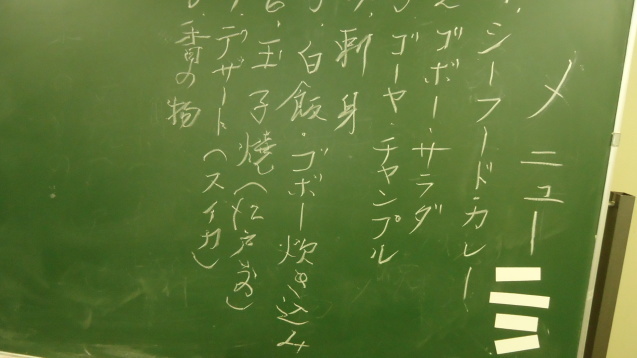 メニュー
シーフードカレー
ゴボー・サラダ
ゴーヤ・チャンプル
刺身
白飯・ゴボー炊き込み
玉子焼(江戸前)
デザート(スイカ)
香の物